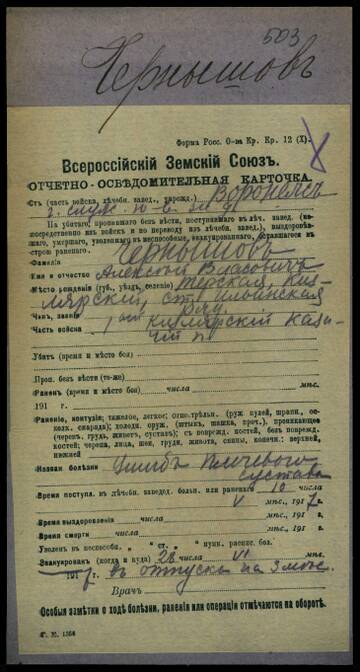 503
Чернышовъ
Форма Росс. О-ва Кр. Кр. 12 (X).
Всероссійскій Земскій Союзъ.
ОТЧЕТНО-ОСВѢДОМИТЕЛЬНАЯ КАРТОЧКА.
Отъ (часть войска, лѣчебн. завед., учрежд.) Воронежъ
На убитаго, пропавшаго безъ вѣсти, поступившаго въ лѣч. завед. (не-
посредственно изъ войскъ и по переводу изъ лѣчебн. завед.), выздоровѣв-
шаго, умершаго, уволеннаго въ неспособные, эвакуированнаго, оставшагося въ
строю раненаго.
Фамилія Чернышовъ
Имя и отчество Алексѣй Власовичъ
Мѣсто рожденія (губ., уѣздъ, селеніе) Терская, Киз-
лярскій, ст. Ильинская
Чинъ, званіе ряд.
Часть войска 1 Кизлярскій каза-
чій п.
Убитъ (время и мѣсто боя)
Проп. безъ вѣсти (то-же)
Раненъ (время и мѣсто боя) числа мѣс.
191 г.
Раненіе, контузія; тяжелое, легкое; огнестрѣльн. (руж. пулей, шрапн., оско-
колк. снаряда); холодн. оруж. (штыкъ, шашка, проч.), проникающее
(черепъ, грудь, животъ, суставъ); съ поврежд. костей, безъ поврежд.
костей; черепа, лица, шеи, груди, живота, спины, конечн.: верхней,
нижней
Названіе болѣзни Ушибъ плечевого
сустава
Время поступл. въ лѣчебн. заведен. больн. или раненаго 10 числа
V мѣс., 1917 г.
Время выздоровленія числа мѣс., 191 г.
Время смерти числа мѣс., 191 г.
Уволенъ въ неспособн. „ ст. „ пункт. распис. бол.
Эвакуированъ (когда и куда) 28 числа VI мѣс.
1917 г. въ отпускъ на 3 мѣс.
Врачъ
Особыя замѣтки о ходѣ болѣзни, раненія или операціи отмѣчаются на оборотѣ.